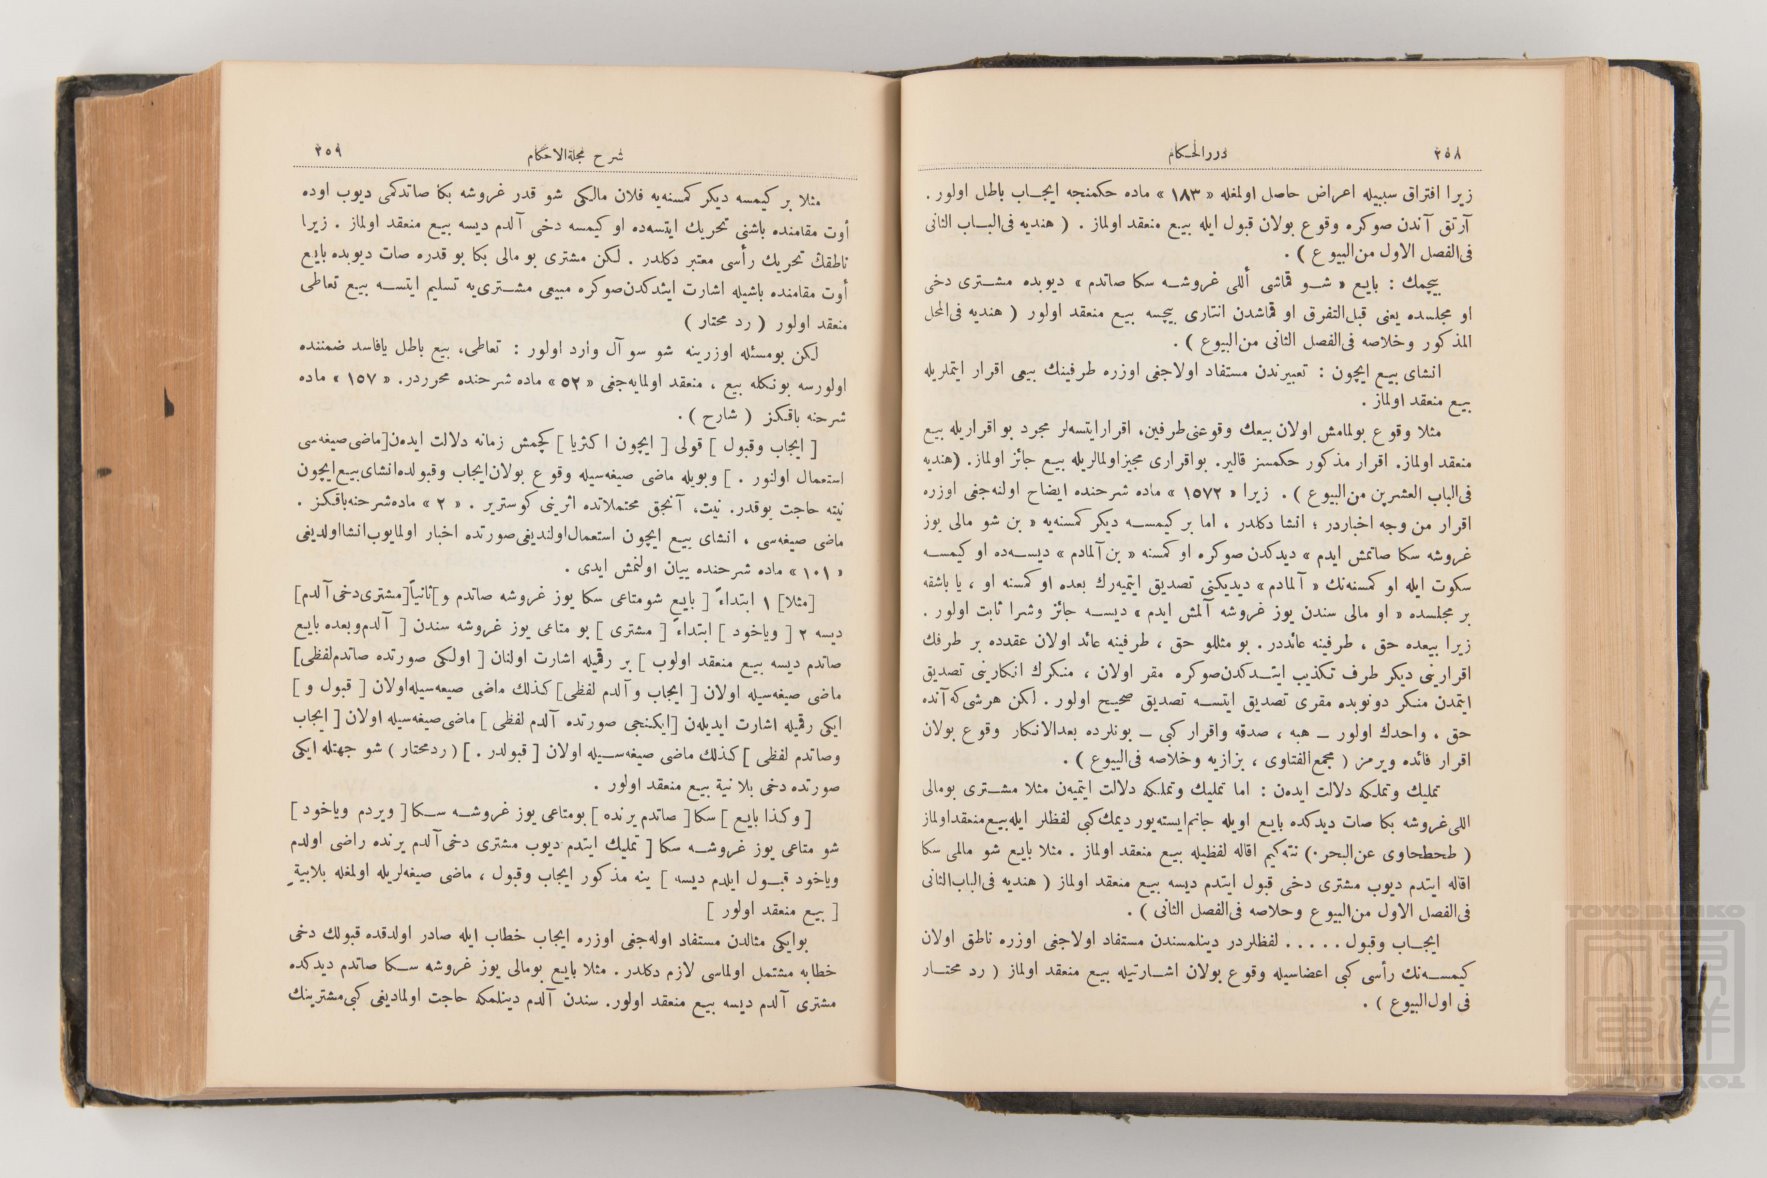 ٢٥٨
دررالحكام
زيرا افتراق سببيله اعراض حاصل اولمغله « ١٨٣ » ماده حكمنجه ايجاب باطل اولور .
آرتق آندن صوكره وقوع بولان قبول ايله بيع منعقد اولماز . ( هنديه فى‌الباب الثانى
فى‌الفصل الاول من‌البيوع ) .
بيچمك : بايع « شو قماشى أللى غروشه سكا صاتدم » ديوبده مشترى دخى
او مجلسده يعنى قبل‌التفرق او قماشدن انتارى بيچسه بيع منعقد اولور ( هنديه فى‌المحل
المذكور وخلاصه فى‌الفصل الثانى من‌البيوع ) .
انشاى بيع ايچون : تعبيرندن مستفاد اولاجغى اوزره طرفينك بيعى اقرار ايتملريله
بيع منعقد اولماز .
مثلا وقوع بولمامش اولان بيعك وقوعنى‌طرفين، اقرارايتسه‌لر مجرد بواقراريله بيع
منعقد اولماز. اقرار مذكور حكمسز قالير. بواقرارى مجيزاولمالريله بيع جائز اولماز. (هنديه
فى‌الباب العشرين من‌البيوع ) . زيرا « ١٥٧٢ » ماده شرحنده ايضاح اولنه‌جغى اوزره
اقرار من وجه اخباردر ؛ انشا دكلدر ، اما بر كيمسه ديكر كمسنه‌يه « بن شو مالى يوز
غروشه سكا صاتمش ايدم » ديدكدن صوكره او كمسنه « بن‌آلمادم » ديسه‌ده او كيمسه
سكوت ايله او كمسنه‌نك « آلمادم » ديديكنى تصديق ايتميه‌رك بعده او كمسنه او ، يا باشقه
بر مجلسده « او مالى سندن يوز غروشه آلمش ايدم » ديسه جائز وشرا ثابت اولور .
زيرا بيعده حق ، طرفينه عائددر . بو مثللو حق ، طرفينه عائد اولان عقدده بر طرفك
اقرارينى ديكر طرف تكذيب ايتدكدن‌صوكره مقر اولان ، منكرك انكارينى تصديق
ايتمدن منكر دونوبده مقرى تصديق ايتسه تصديق صحيح اولور . لكن هرشى‌كه آنده
حق ، واحدك اولور ــ هبه ، صدقه واقرار كبى ــ بونلرده بعدالانكار وقوع بولان
اقرار فائده ويرمز ( مجمع‌الفتاوى ، بزازيه وخلاصه فى‌البيوع ) .
تمليك وتملكه دلالت ايدەن : اما تمليك وتملكه دلالت ايتميەن مثلا مشترى بومالى
اللى‌غروشه بكا صات ديدكده بايع اويله جانم‌ايسته‌يور ديمك‌كبى لفظلر ايله‌بيع‌منعقداولماز
( طحطحاوى عن‌البحر.) نته‌كيم اقاله لفظيله بيع منعقد اولماز . مثلا بايع شو مالمى سكا
اقاله ايتدم ديوب مشترى دخى قبول ايتدم ديسه بيع منعقد اولماز ( هنديه فى‌الباب‌الثانى
فى‌الفصل الاول من‌البيوع وخلاصه فى‌الفصل الثانى ) .
ايجاب وقبول . . . . . لفظلردر دينلمسندن مستفاد اولاجغى اوزره ناطق اولان
كيمسه‌نك رأسى كبى اعضاسيله وقوع بولان اشارتيله بيع منعقد اولماز ( رد محتار
فى اول‌البيوع ) .
شرح مجلة‌الاحكام
٢٥٩
مثلا بر كيمسه ديكر كمسنه‌يه فلان مالكى شو قدر غروشه بكا صاتدكمى ديوب اوده
أوت مقامنده باشنى تحريك ايتسه‌ده او كيمسه دخى آلدم ديسه بيع منعقد اولماز . زيرا
ناطقك تحريك رأسى معتبر دكلدر . لكن مشترى بو مالى بكا بو قدره صات ديوبده بايع
أوت مقامنده باشيله اشارت ايتدكدن‌صوكره مبيعى مشترى‌يه تسليم ايتسه بيع تعاطى
منعقد اولور ( رد محتار )
لكن بومسئله اوزرينه شو سوآل وارد اولور : تعاطى، بيع باطل يافاسد ضمننده
اولورسه بونكله بيع ، منعقد اولمايه‌جغى « ٥٢ » ماده شرحنده محرردر. « ١٥٧ » ماده
شرحنه باقكز ( شارح ) .
[ ايجاب وقبول ] قولى [ ايچون اكثريا ] كچمش زمانه دلالت ايدەن[ماضى‌صيغه‌سى
استعمال اولنور . ] وبويله ماضى صيغه‌سيله وقوع بولان‌ايجاب وقبولده‌انشاى‌بيع‌ايچون
نيته حاجت يوقدر. نيت، آنجق محتملاتده اثرينى كوسترير . « ٢ » ماده‌شرحنه‌باقكز .
ماضى صيغه‌سى ، انشاى بيع ايچون استعمال‌اولنديغى‌صورتده اخبار اولمايوب‌انشااولديغى
« ١٠١ » ماده شرحنده بيان اولنمش ايدى .
[مثلا] ١ ابتداءً [ بايع شومتاعى سكا يوز غروشه صاتدم و]ثانياً[مشترى‌دخى‌آلدم]
ديسه ٢ [ وياخود ] ابتداءً [ مشترى ] بو متاعى يوز غروشه سندن [ آلدم‌وبعده بايع
صاتدم ديسه بيع منعقد اولوب ] بر رقميله اشارت اولنان [ اولكى صورتده صاتدم‌لفظى]
ماضى صيغه‌سيله اولان [ ايجاب وآلدم لفظى] كذلك ماضى صيغه‌سيله‌اولان [ قبول و ]
ايكى رقميله اشارت ايديلەن [ايكنجى صورتده آلدم لفظى ] ماضى‌صيغه‌سيله اولان [ ايجاب
وصاتدم لفظى ] كذلك ماضى صيغه‌سيله اولان [ قبولدر . ] ( ردمحتار ) شو جهتله ايكى
صورتده دخى بلا نية بيع منعقد اولور .
[ وكذا بايع ] سكا[ صاتدم يرنده ] بومتاعى يوز غروشه سكا[ ويردم وياخود ]
شو متاعى يوز غروشه سكا [ تمليك ايتدم ديوب مشترى دخى‌آلدم يرنده راضى اولدم
وياخود قبول ايلدم ديسه ] ينه مذكور ايجاب وقبول ، ماضى صيغه‌لريله اولمغله بلانية
[ بيع منعقد اولور ]
بوايكى مثالدن مستفاد اوله‌جغى اوزره ايجاب خطاب ايله صادر اولدقده قبولك دخى
خطابه مشتمل اولماسى لازم دكلدر . مثلا بايع بومالى يوز غروشه سكا صاتدم ديدكده
مشترى آلدم ديسه بيع منعقد اولور. سندن آلدم دينلمكه حاجت اولماديغى كبى‌مشترينك
TOYO BUNKO